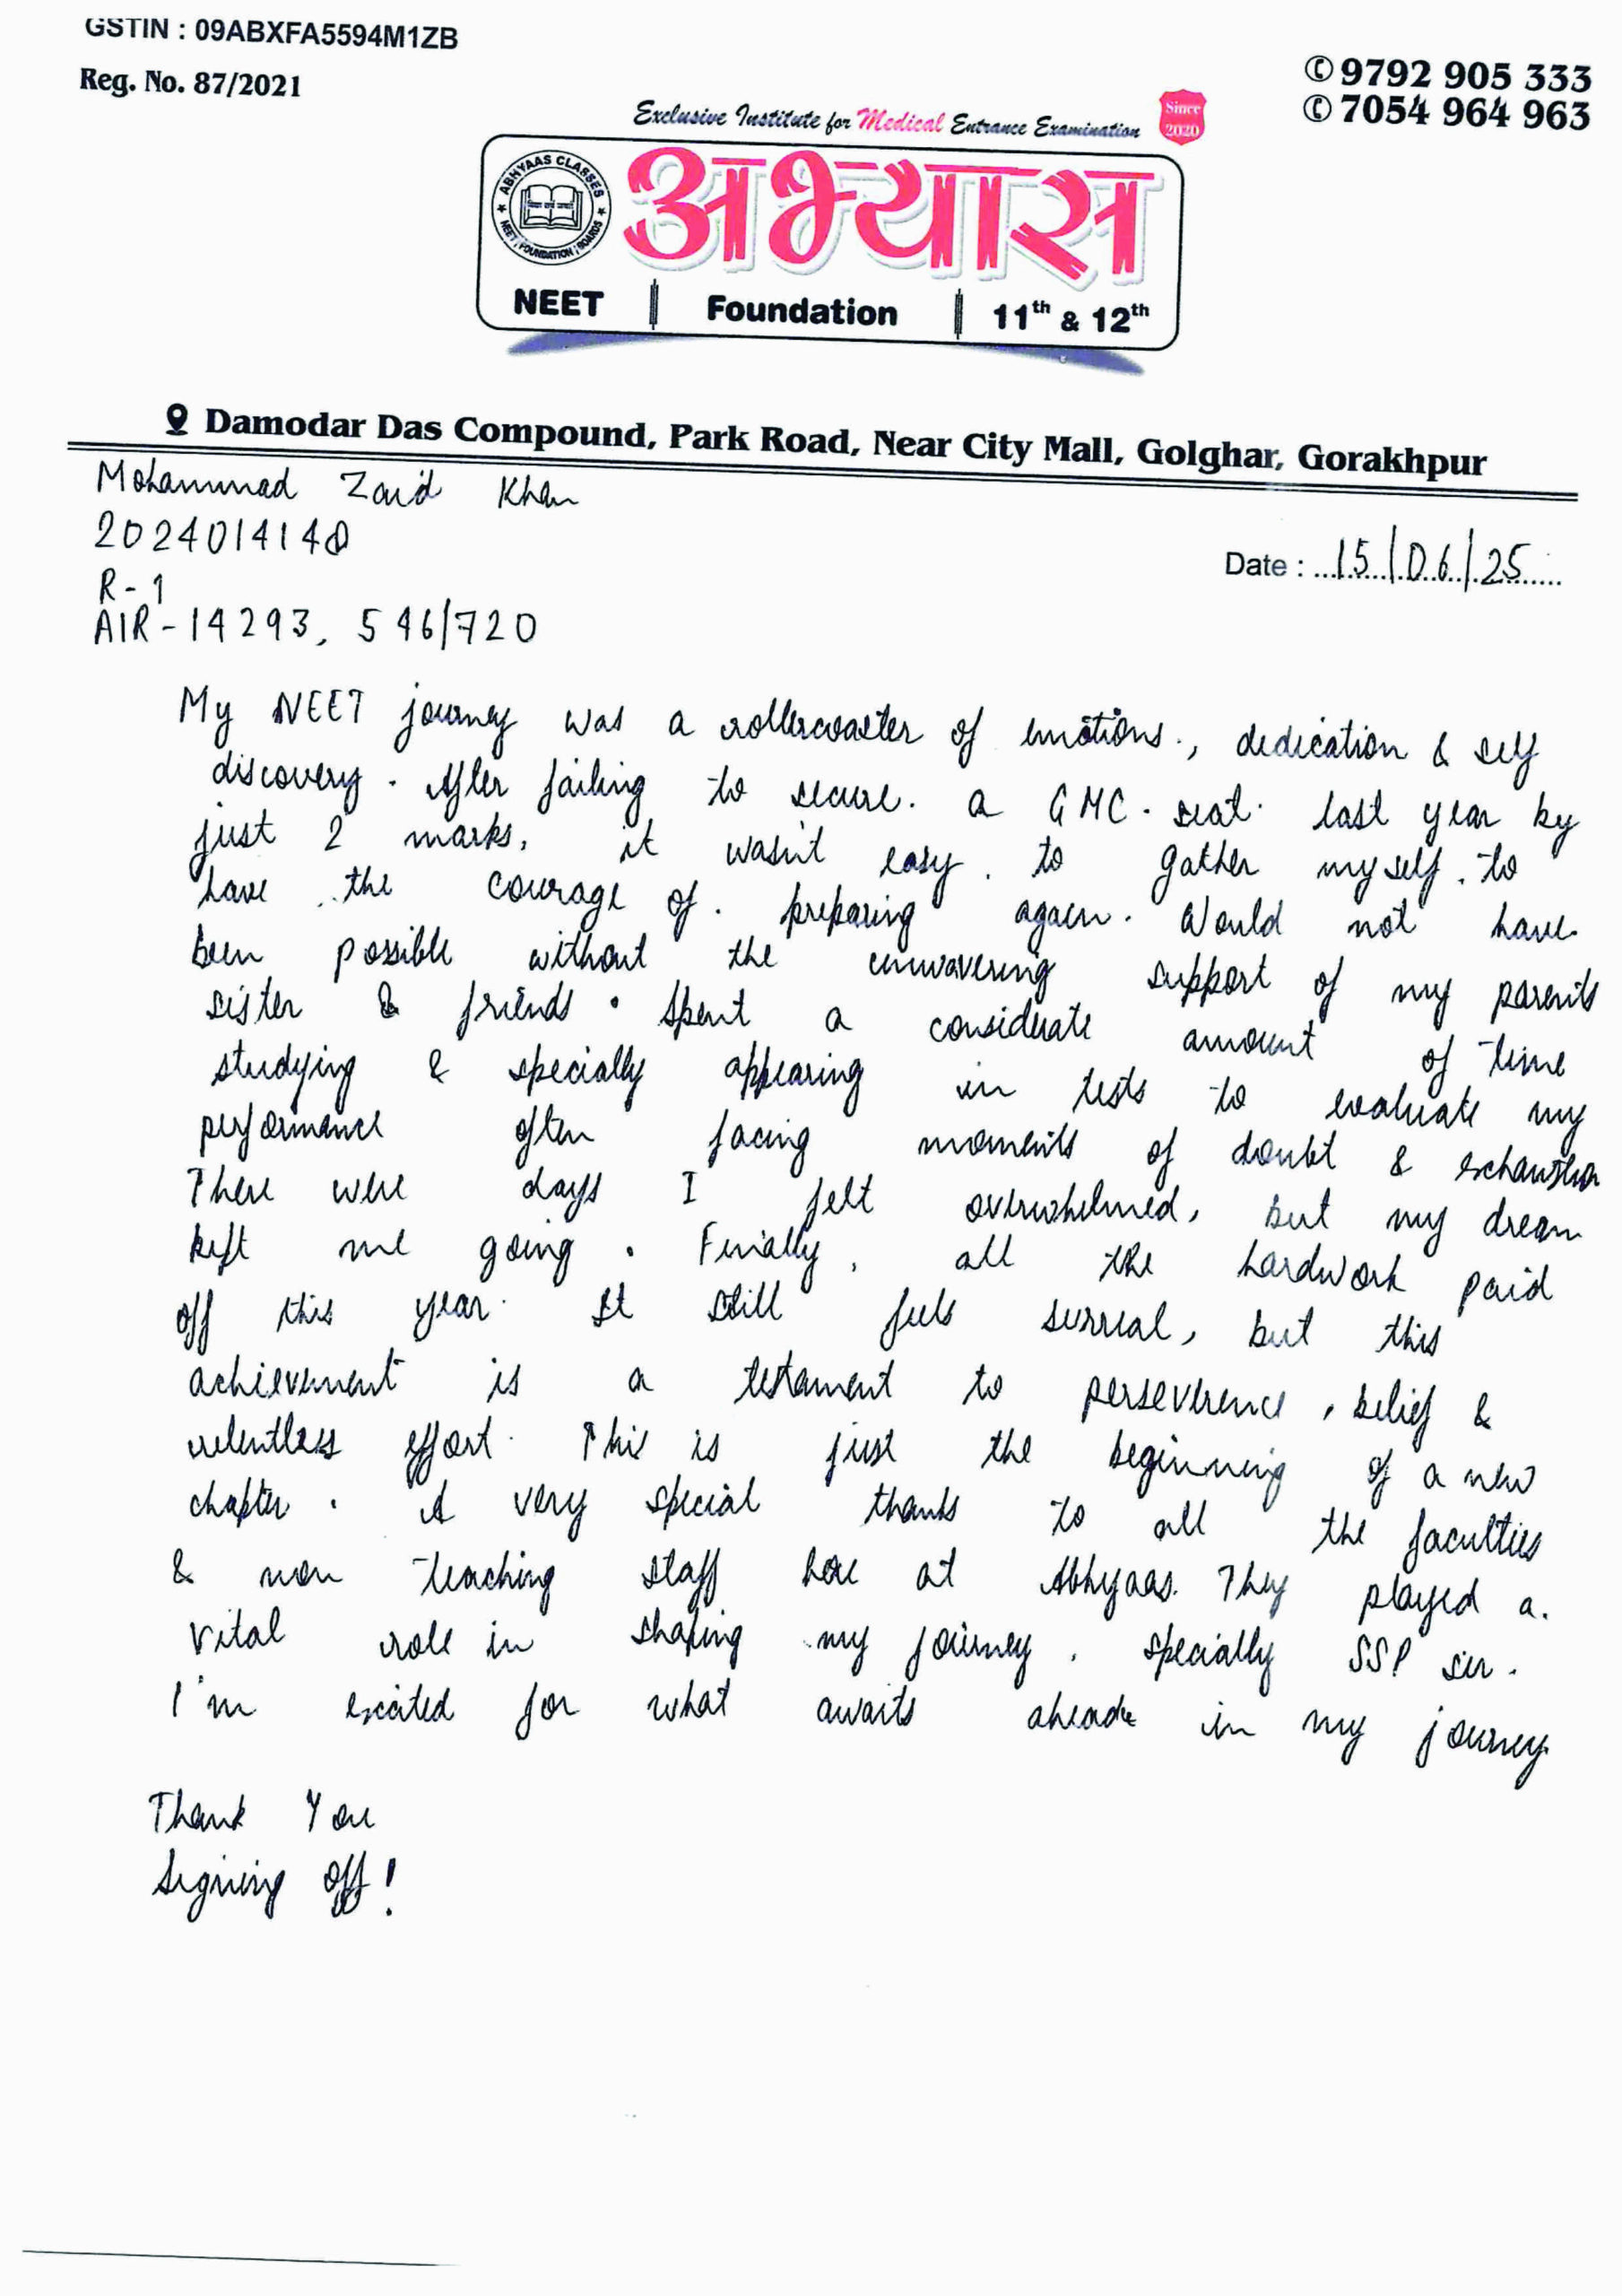 GSTIN : 09ABXFA5594M1ZB
Reg. No. 87/2021
✆ 9792 905 333
✆ 7054 964 963
Exclusive Institute for Medical Entrance Examination
Since 2020
ABHYAAS CLASSES
NEET | FOUNDATION | BOARDS
अभ्यास
NEET | Foundation | 11th & 12th
Damodar Das Compound, Park Road, Near City Mall, Golghar, Gorakhpur
Mohammad Zaid Khan
Date : 15/06/25
R-1
AIR-14293, 546/720
My NEET journey was a rollercoaster of emotions., dedication & self
discovery. After failing to secure. a GMC. seat. last year by
just 2 marks, it wasn't easy. to gather myself. to
have the courage of. preparing again. Would not have
been possible without the unwavering support of my parents
sister & friends. Spent a considerate amount of time
studying & specially appearing in tests to evaluate my
performance often facing moments of doubt &
There were days I felt overwhelmed, but my dream
kept me going. Finally, all the hardwork paid
off this year. It still feels surreal, but this
achievement is a testament to perseverence, belief &
relentless effort. This is just the beginning of a new
chapter. A very special thanks to all the faculties
& non teaching staff here at Abhyaas. They played a.
vital role in shaping my journey, specially SSP sir.
I'm excited for what awaits ahead in my journey.
Thank You
Signing off!